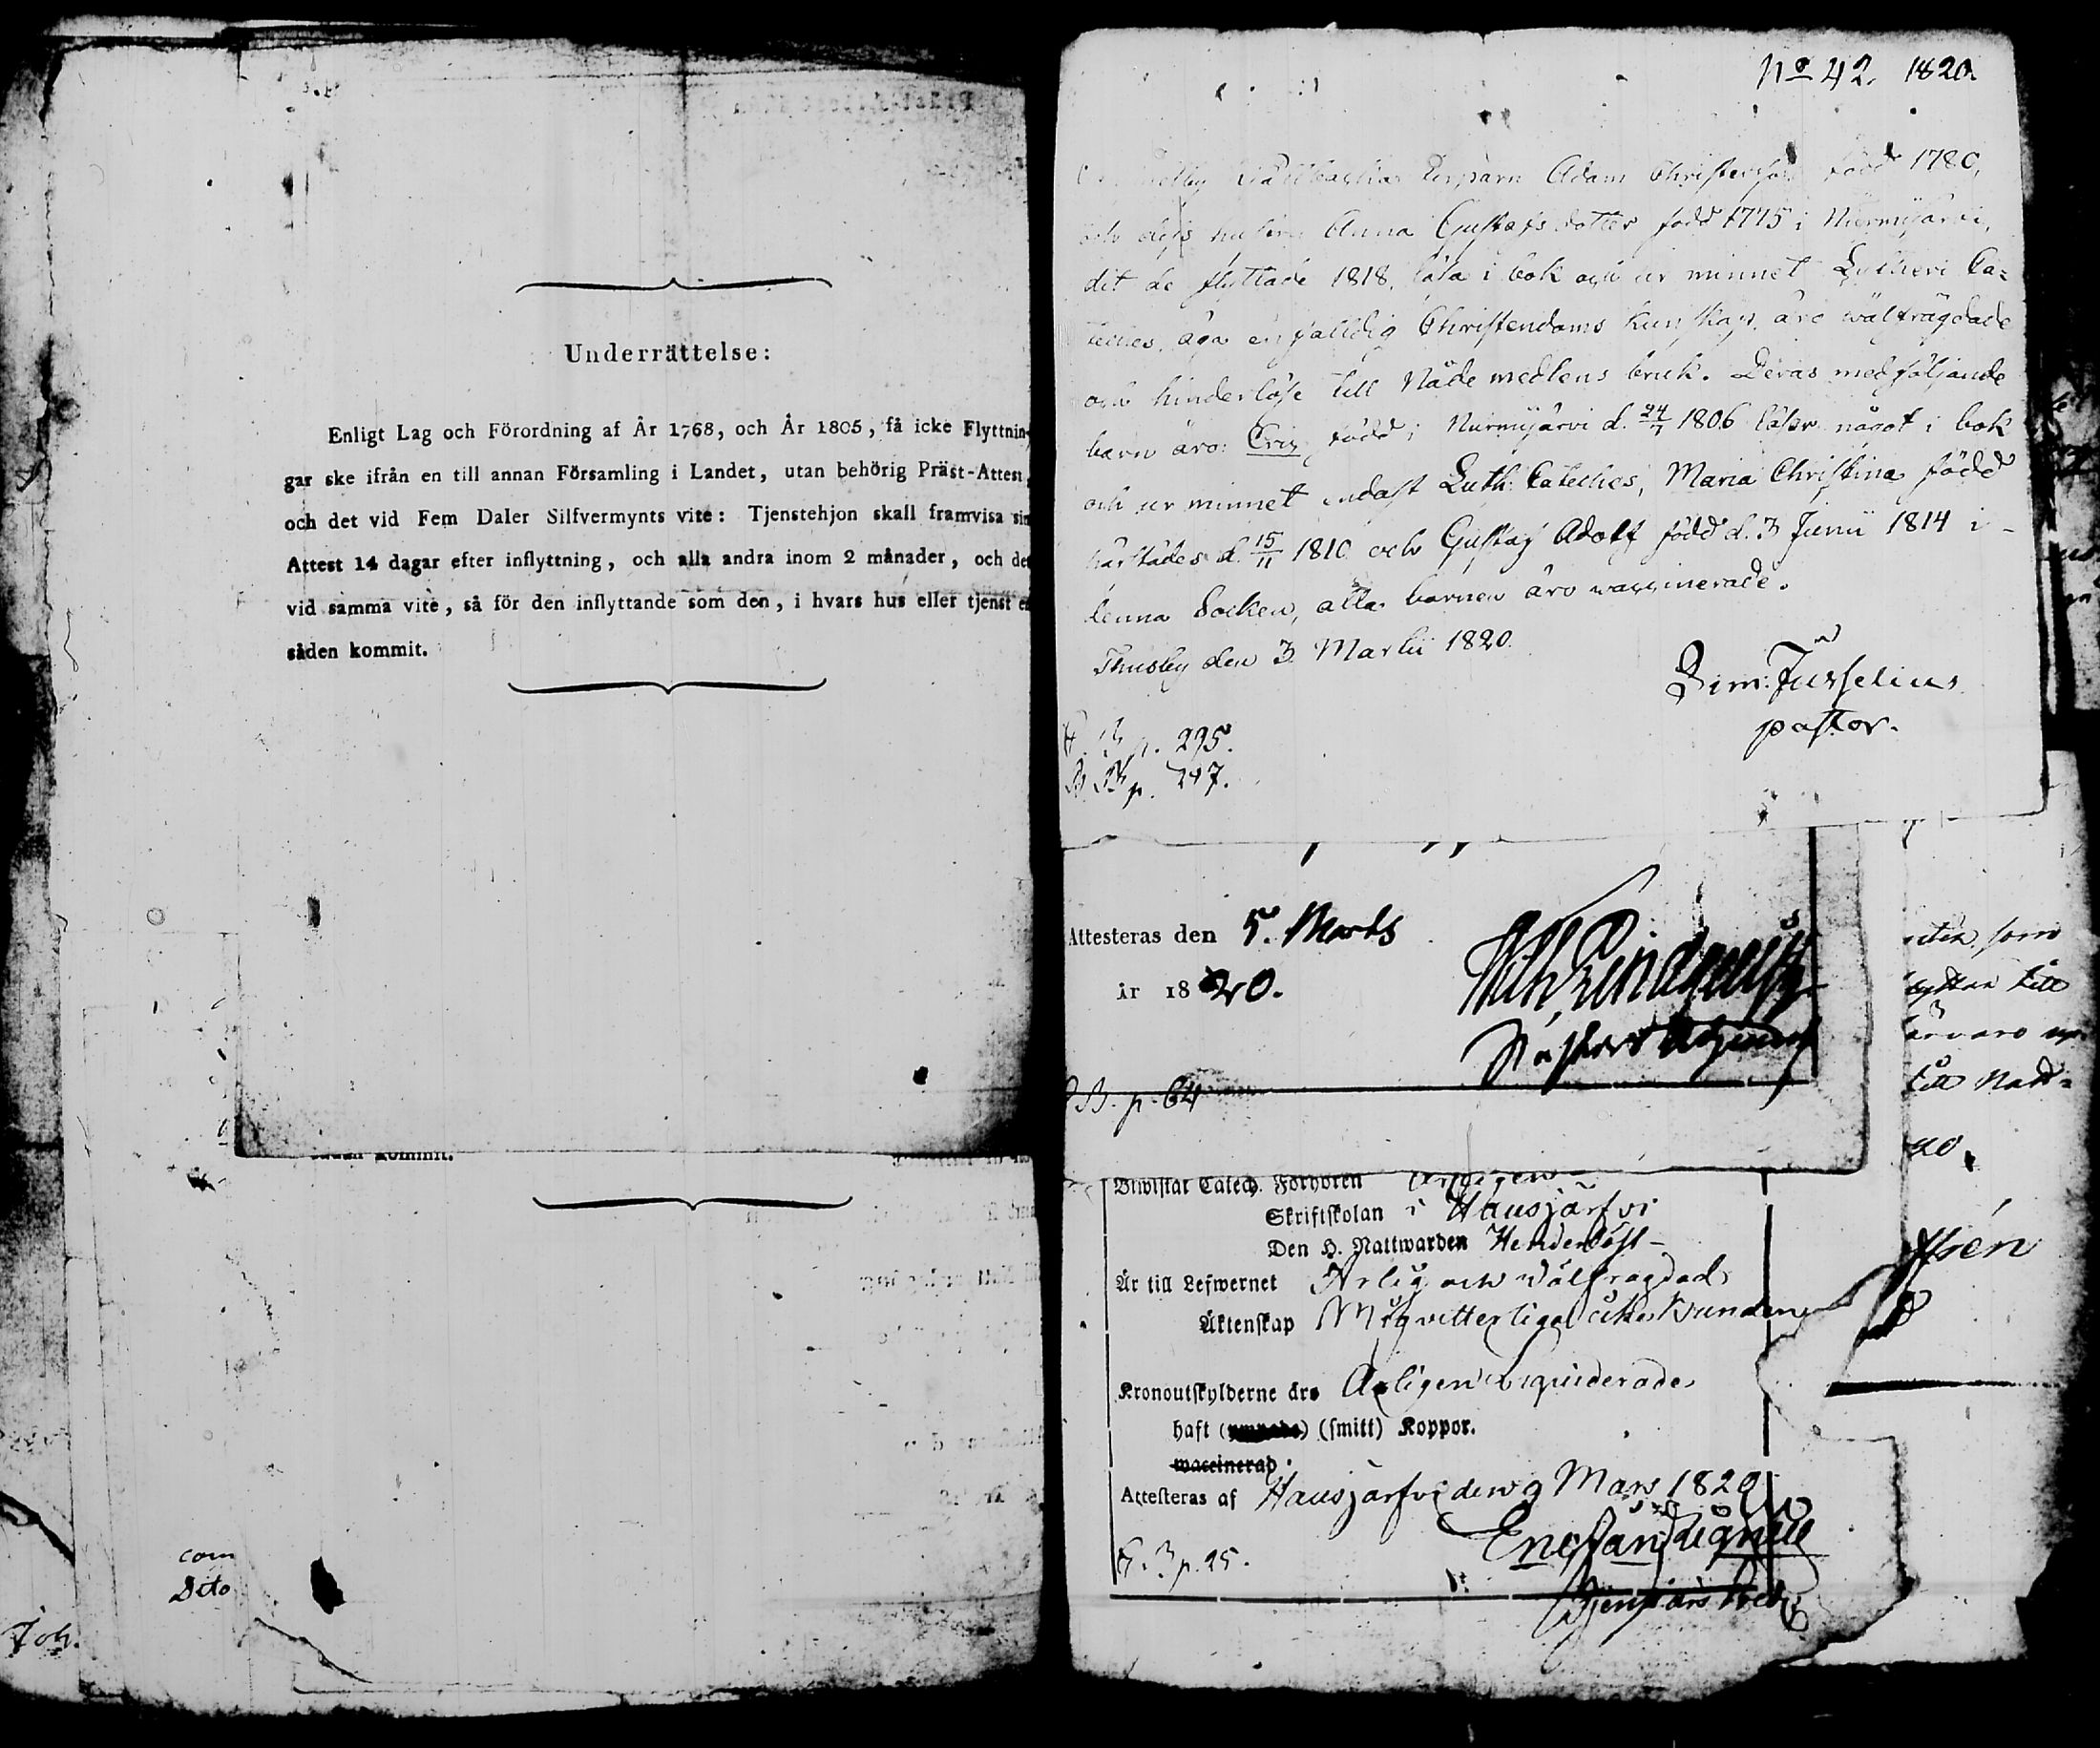 Underrättelse:
Enligt Lag och Förordning af År 1768, och År 1805, få icke Flyttnin-
gar ske ifrån en till annan Församling i Landet, utan behörig Präst-Attest,
och det vid Fem Daler Silfvermynts vite: Tjenstehjon skall framvisa sin
Attest 14 dagar efter inflyttning, och alla andra inom 2 månader, och det
vid samma vite, så för den inflyttande som den, i hvars hus eller tjenst en
såden kommit.
sådan kommit.
com
Dito
Joh.
No 42. 1820.
Adam Christersson född 1780,
och dess hustru Anna Gustafsdotter född 1775 i Nurmijärvi,
dit de flyttade 1818, läsa i bok och ur minnet Lutheri Ca=
teches, äga enfalldig Christendoms kunskap, äro wälfrägdade
och hinderlöse till Nådemedlens bruk. Deras medföljande
barn äro: Eric född i Nurmijärvi d. 24/7 1806 läser något i bok
och ur minnet endast Luth. Cateches, Maria Christina född
härstädes d. 15/11 1810 och Gustaf Adolf född d. 3 Junii 1814 i
denna Socken, alla barnen äro waccinerade.
Thusby den 3 Martii 1820.
Sim: Jusselius
pastor.
p. 295.
p. 247.
Attesteras den 5. Marts
år 1820.
B. p. 64
Biwistat Catech. Förhören
Skriftskolan i Hausjärfvi
Den H. Nattwarden Hinderlöst
Är till Lefwernet Ärlig och Wälfrägdad
Äktenskap Mig vitterligen obunden
Kronoutskylderne äro Årligen Liquiderade
haft (smitt) Koppor.
waccinerad.
Attesteras af Hausjärfvi den 9 Mars 1820
p. 25.
som
till
till Nad=
20.